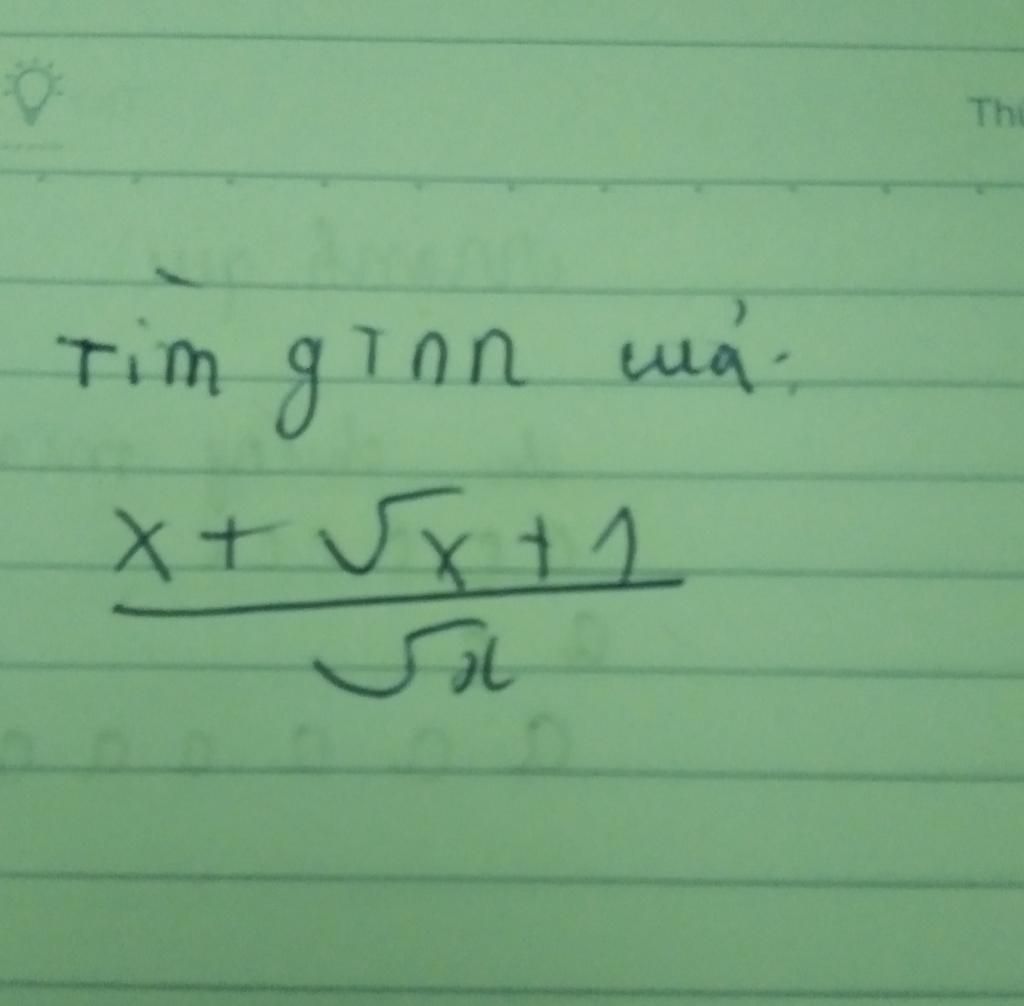 Thứ
Tìm gTnn của:
x + √x + 1
√x